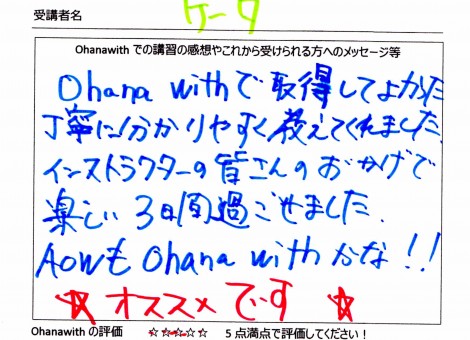 受講者名 ケータ
Ohanawith での講習の感想やこれから受けられる方へのメッセージ等
Ohana withで取得してよかった
丁寧に分かりやすく教えてくれました。
インストラクターの皆さんのおかげで
楽しい3日間過ごせました。
AOWもOhana withかな!!
☆オススメです☆
Ohanawith の評価 ☆☆☆☆☆ 5 点満点で評価してください!